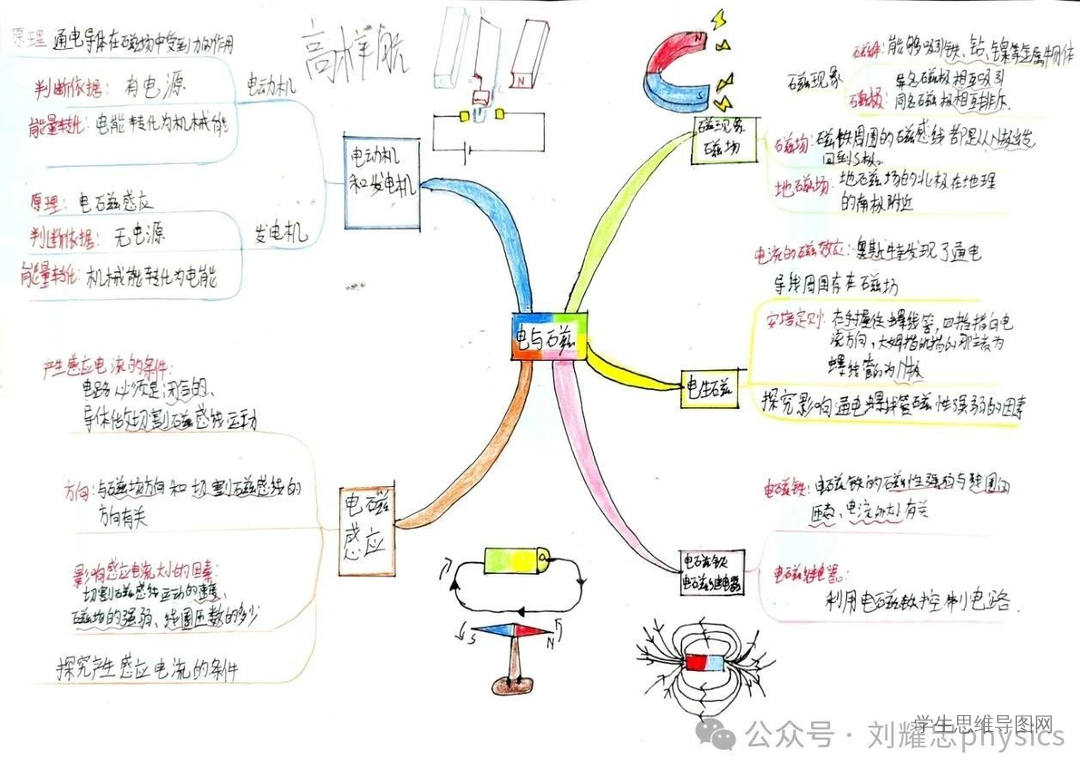 原理 通电导体在磁场中受到力的作用
判断依据：有电源
能量转化：电能转化为机械能
电动机
原理：电磁感应
判断依据：无电源
能量转化：机械能转化为电能
发电机
电动机
和发电机
高梓航
N
N
S
磁现象
磁场
磁现象
磁性：能够吸引铁、钴、镍等金属物体
异名磁极相互吸引
同名磁极相互排斥
磁场：磁铁周围的磁感线都是从N极出发
回到S极。
地磁场：地磁场的北极在地理
的南极附近
电与磁
电生磁
电流的磁效应：奥斯特发现了通电
导线周围存在磁场
安培定则：右手握住螺线管，四指指向电
流方向，大姆指所指的那端为
螺线管的为N极
探究影响通电螺线管磁性强弱的因素
产生感应电流的条件：
电路必须是闭合的、
导体做切割磁感线运动
方向：与磁场方向和切割磁感线的
方向有关
影响感应电流大小的因素：
切割磁感线运动的速度、
磁场的强弱、线圈匝数的多少
探究产生感应电流的条件
电磁
感应
电磁铁
电磁继电器
电磁铁：电磁铁的磁性强弱与线圈的
匝数、电流的大小有关
电磁继电器：
利用电磁铁控制电路.
S
N
学生思维导图网
公众号·刘耀忠physics